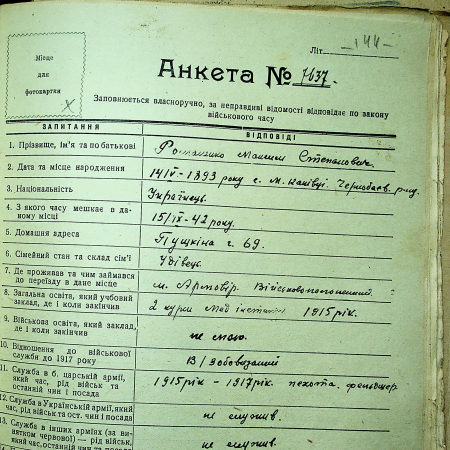 – 144 –
Літ.
Місце
для
фотокартки
Анкета № 7637.
Заповнюється власноручно, за неправдиві відомості відповідає по закону
військового часу
ЗАПИТАННЯ ВІДПОВІДІ
1. Прізвище, ім'я та по батькові Максим Степанович
2. Дата та місце народження 14/IV-1893 року с. М. Канівці Чорнобаєв.
3. Національність Українець
4. З якого часу мешкає в даному місці 15/IX-42 року.
5. Домашня адреса Пушкіна ч. 69.
6. Сімейний стан та склад сім'ї Удівець
7. Де проживав та чим займався
до переїзду в дане місце м. Армовір. Військовополонений.
8. Загальна освіта, який учбовий
заклад, де і коли закінчив 2 курси Мед 1915 рік.
9. Військова освіта, який заклад,
де і коли закінчив не маю.
10. Відношення до військової
служби до 1917 року В/зобовозаний
11. Служба в б. царській армії,
який час, рід військ та
останній чин і посада 1915 рік - 1917 рік. пехота. фельдшер
12. Служба в Українській армії, який
час, рід військ та ост. чин і посада не служив.
13. Служба в інших арміях (за винятком
червоної) — рід військ,
який час, останній чин та посада не служив.